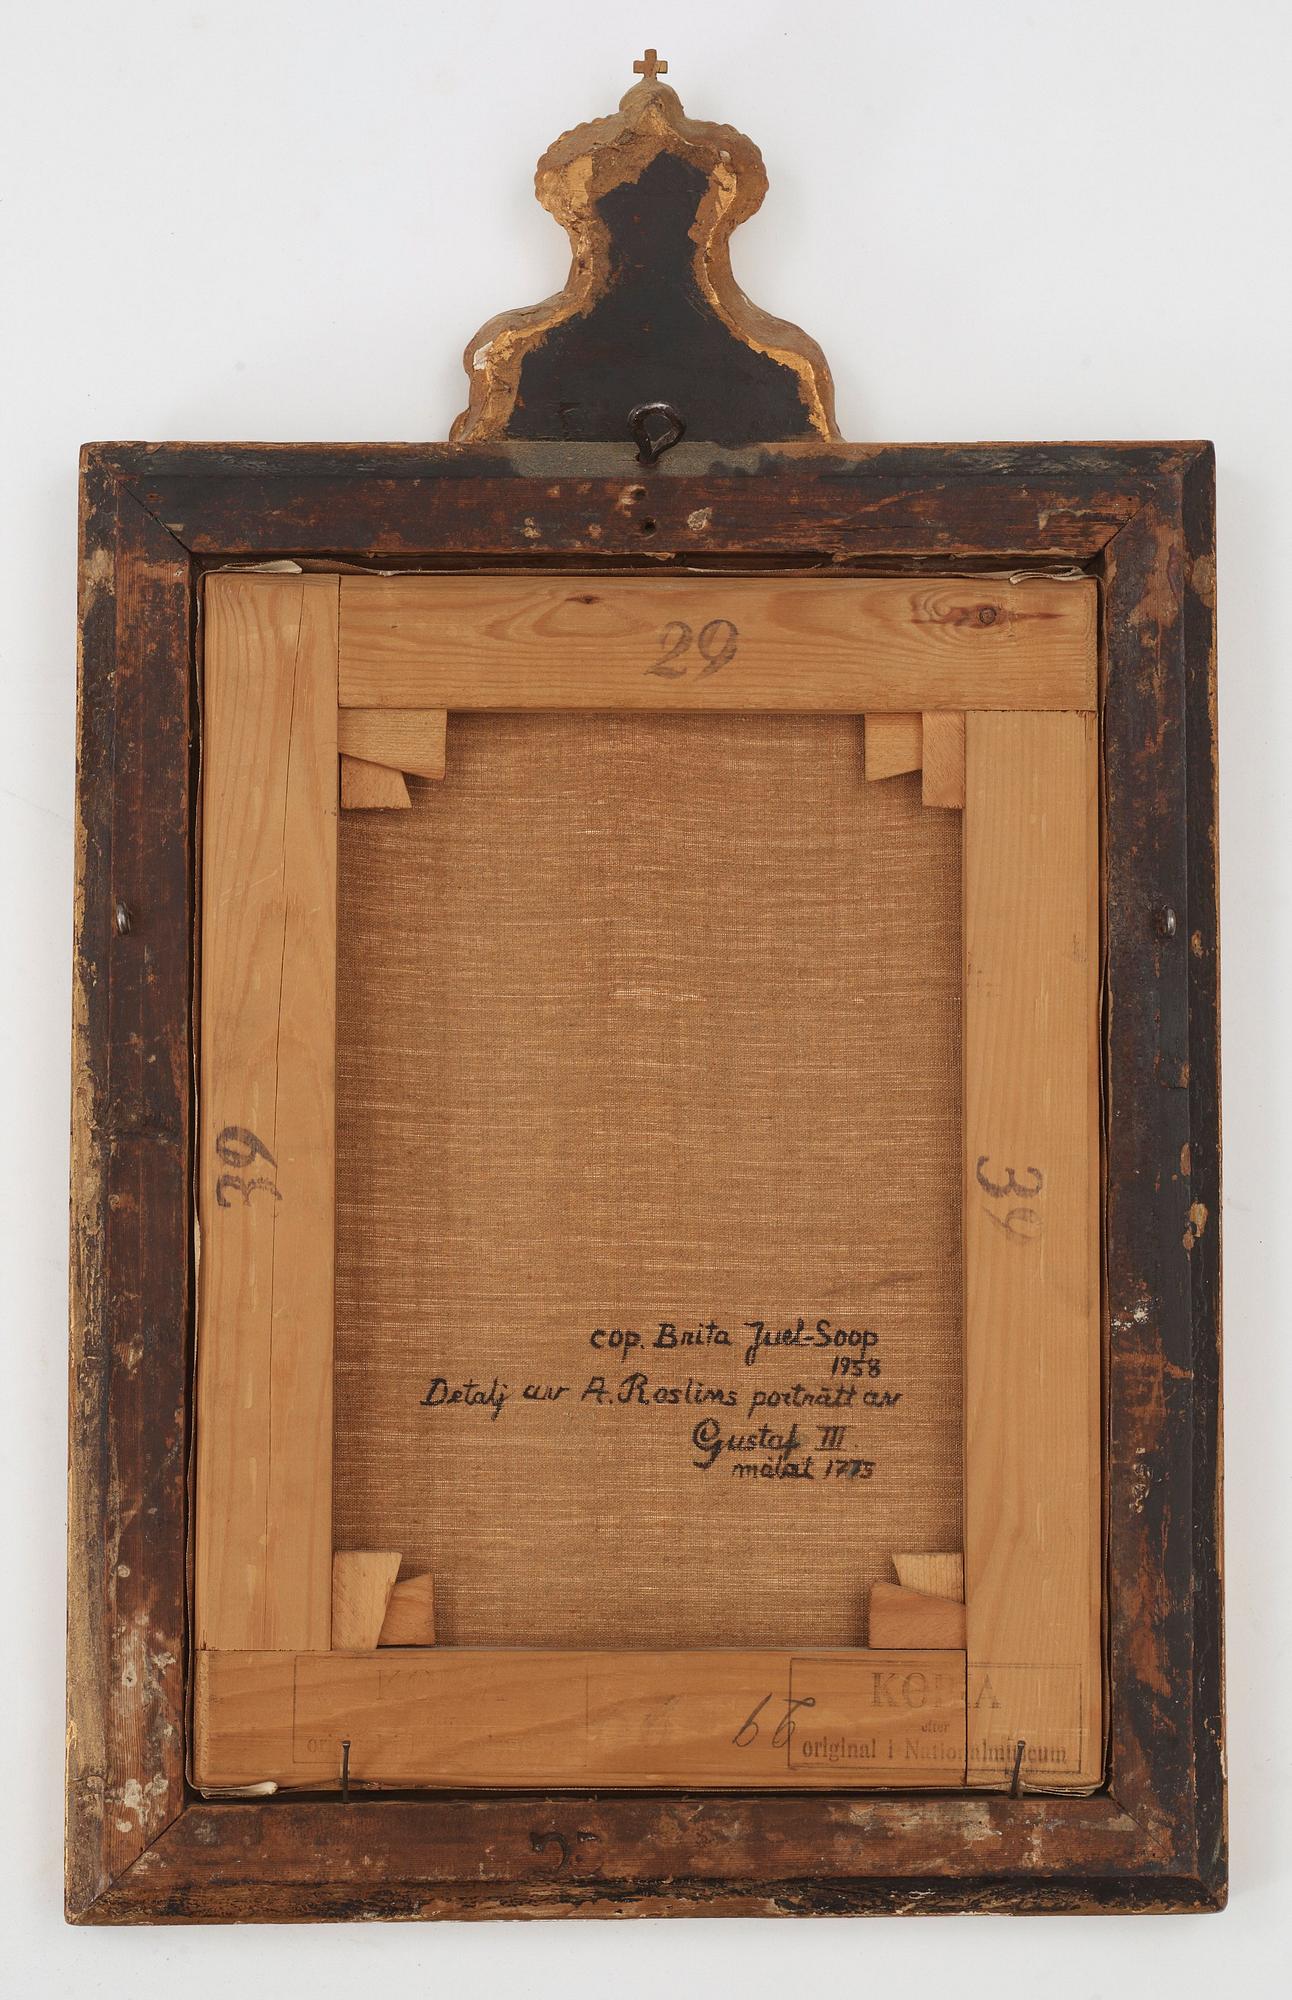 29
39
39
cop. Brita Juel-Soop
1958
Detalj av A. Roslins porträtt av
Gustaf III.
målat 1775
29
KOPIA
efter
original i Nationalmuseum